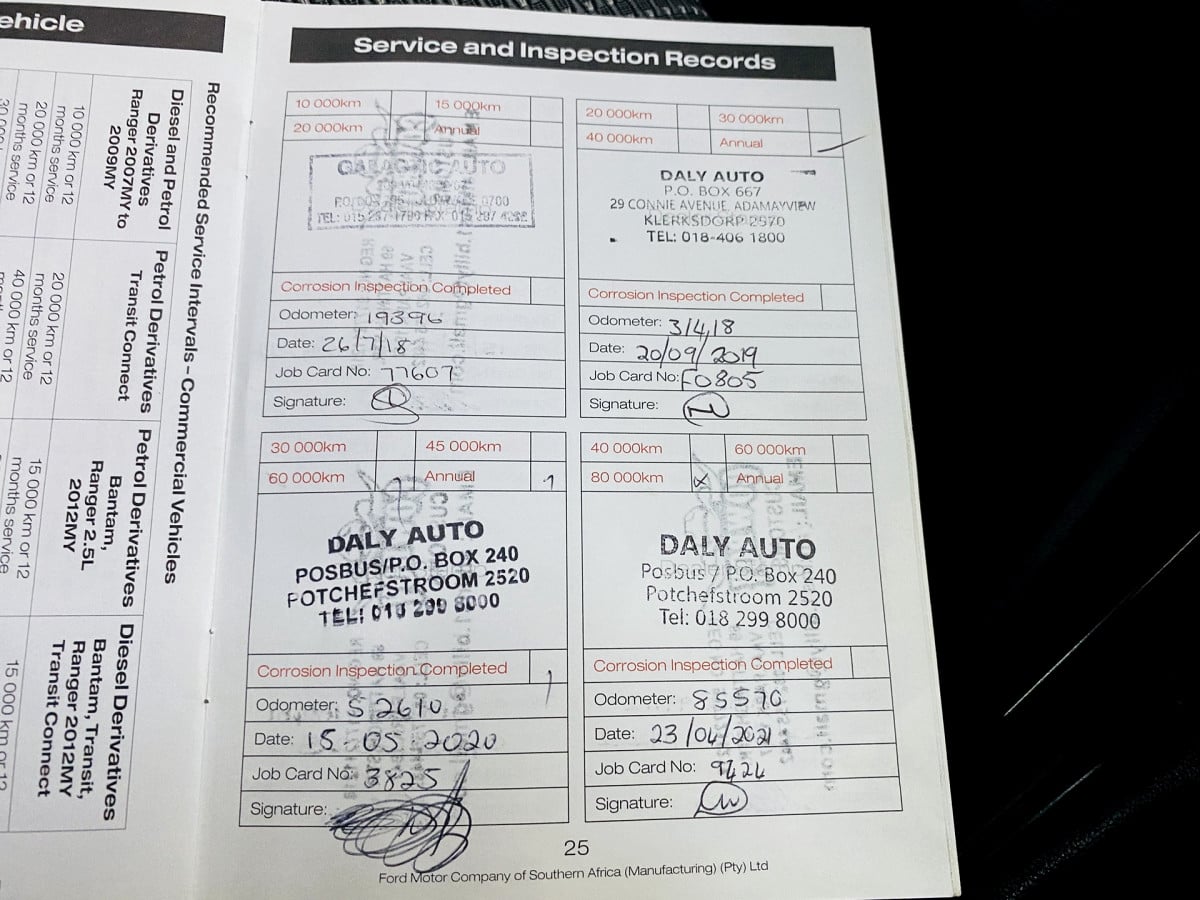 ehicle
Recommended Service Intervals – Commercial Vehicles
Diesel and Petrol
Derivatives
Ranger 2007MY to
2009MY
10 000 km or 12
months service
20 000 km or 12
months service
Petrol Derivatives
Transit Connect
20 000 km or 12
months service
40 000 km or 12
Petrol Derivatives
Bantam,
Ranger 2.5L
2012MY
15 000 km or 12
months service
Diesel Derivatives
Bantam, Transit,
Ranger 2012MY
Transit Connect
15 000 km or 12
Service and Inspection Records
10 000km 15 000km
20 000km Annual
AUTO
Corrosion Inspection Completed
Odometer: 19396
Date: 26/7/18
Job Card No: 77607
Signature:
20 000km 30 000km
40 000km Annual
DALY AUTO
P.O. BOX 667
29 CONNIE AVENUE, ADAMAYVIEW
KLERKSDORP 2570
TEL: 018-406 1800
Corrosion Inspection Completed
Odometer: 3/4/8
Date: 20/09/2019
Job Card No: F0805
Signature:
30 000km 45 000km
60 000km Annual
DALY AUTO
POSBUS/P.O. BOX 240
POTCHEFSTROOM 2520
TEL: 018 299 8000
Corrosion Inspection Completed
Odometer: 52610
Date: 15-05 2020
Job Card No: 3825
Signature:
40 000km 60 000km
80 000km X Annual
DALY AUTO
Posbus / P.O. Box 240
Potchefstroom 2520
Tel: 018 299 8000
Corrosion Inspection Completed
Odometer: 85570
Date: 23/04/2021
Job Card No: 9424
Signature:
25
Ford Motor Company of Southern Africa (Manufacturing) (Pty) Ltd